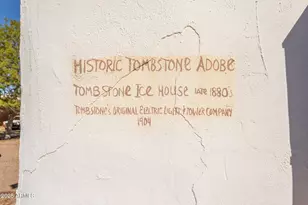 HISTORIC TOMBSTONE ADOBE
TOMBSTONE ICE HOUSE LATE 1880'S
TOMBSTONE'S ORIGINAL ELECTRIC LIGHT & POWER COMPANY
1904